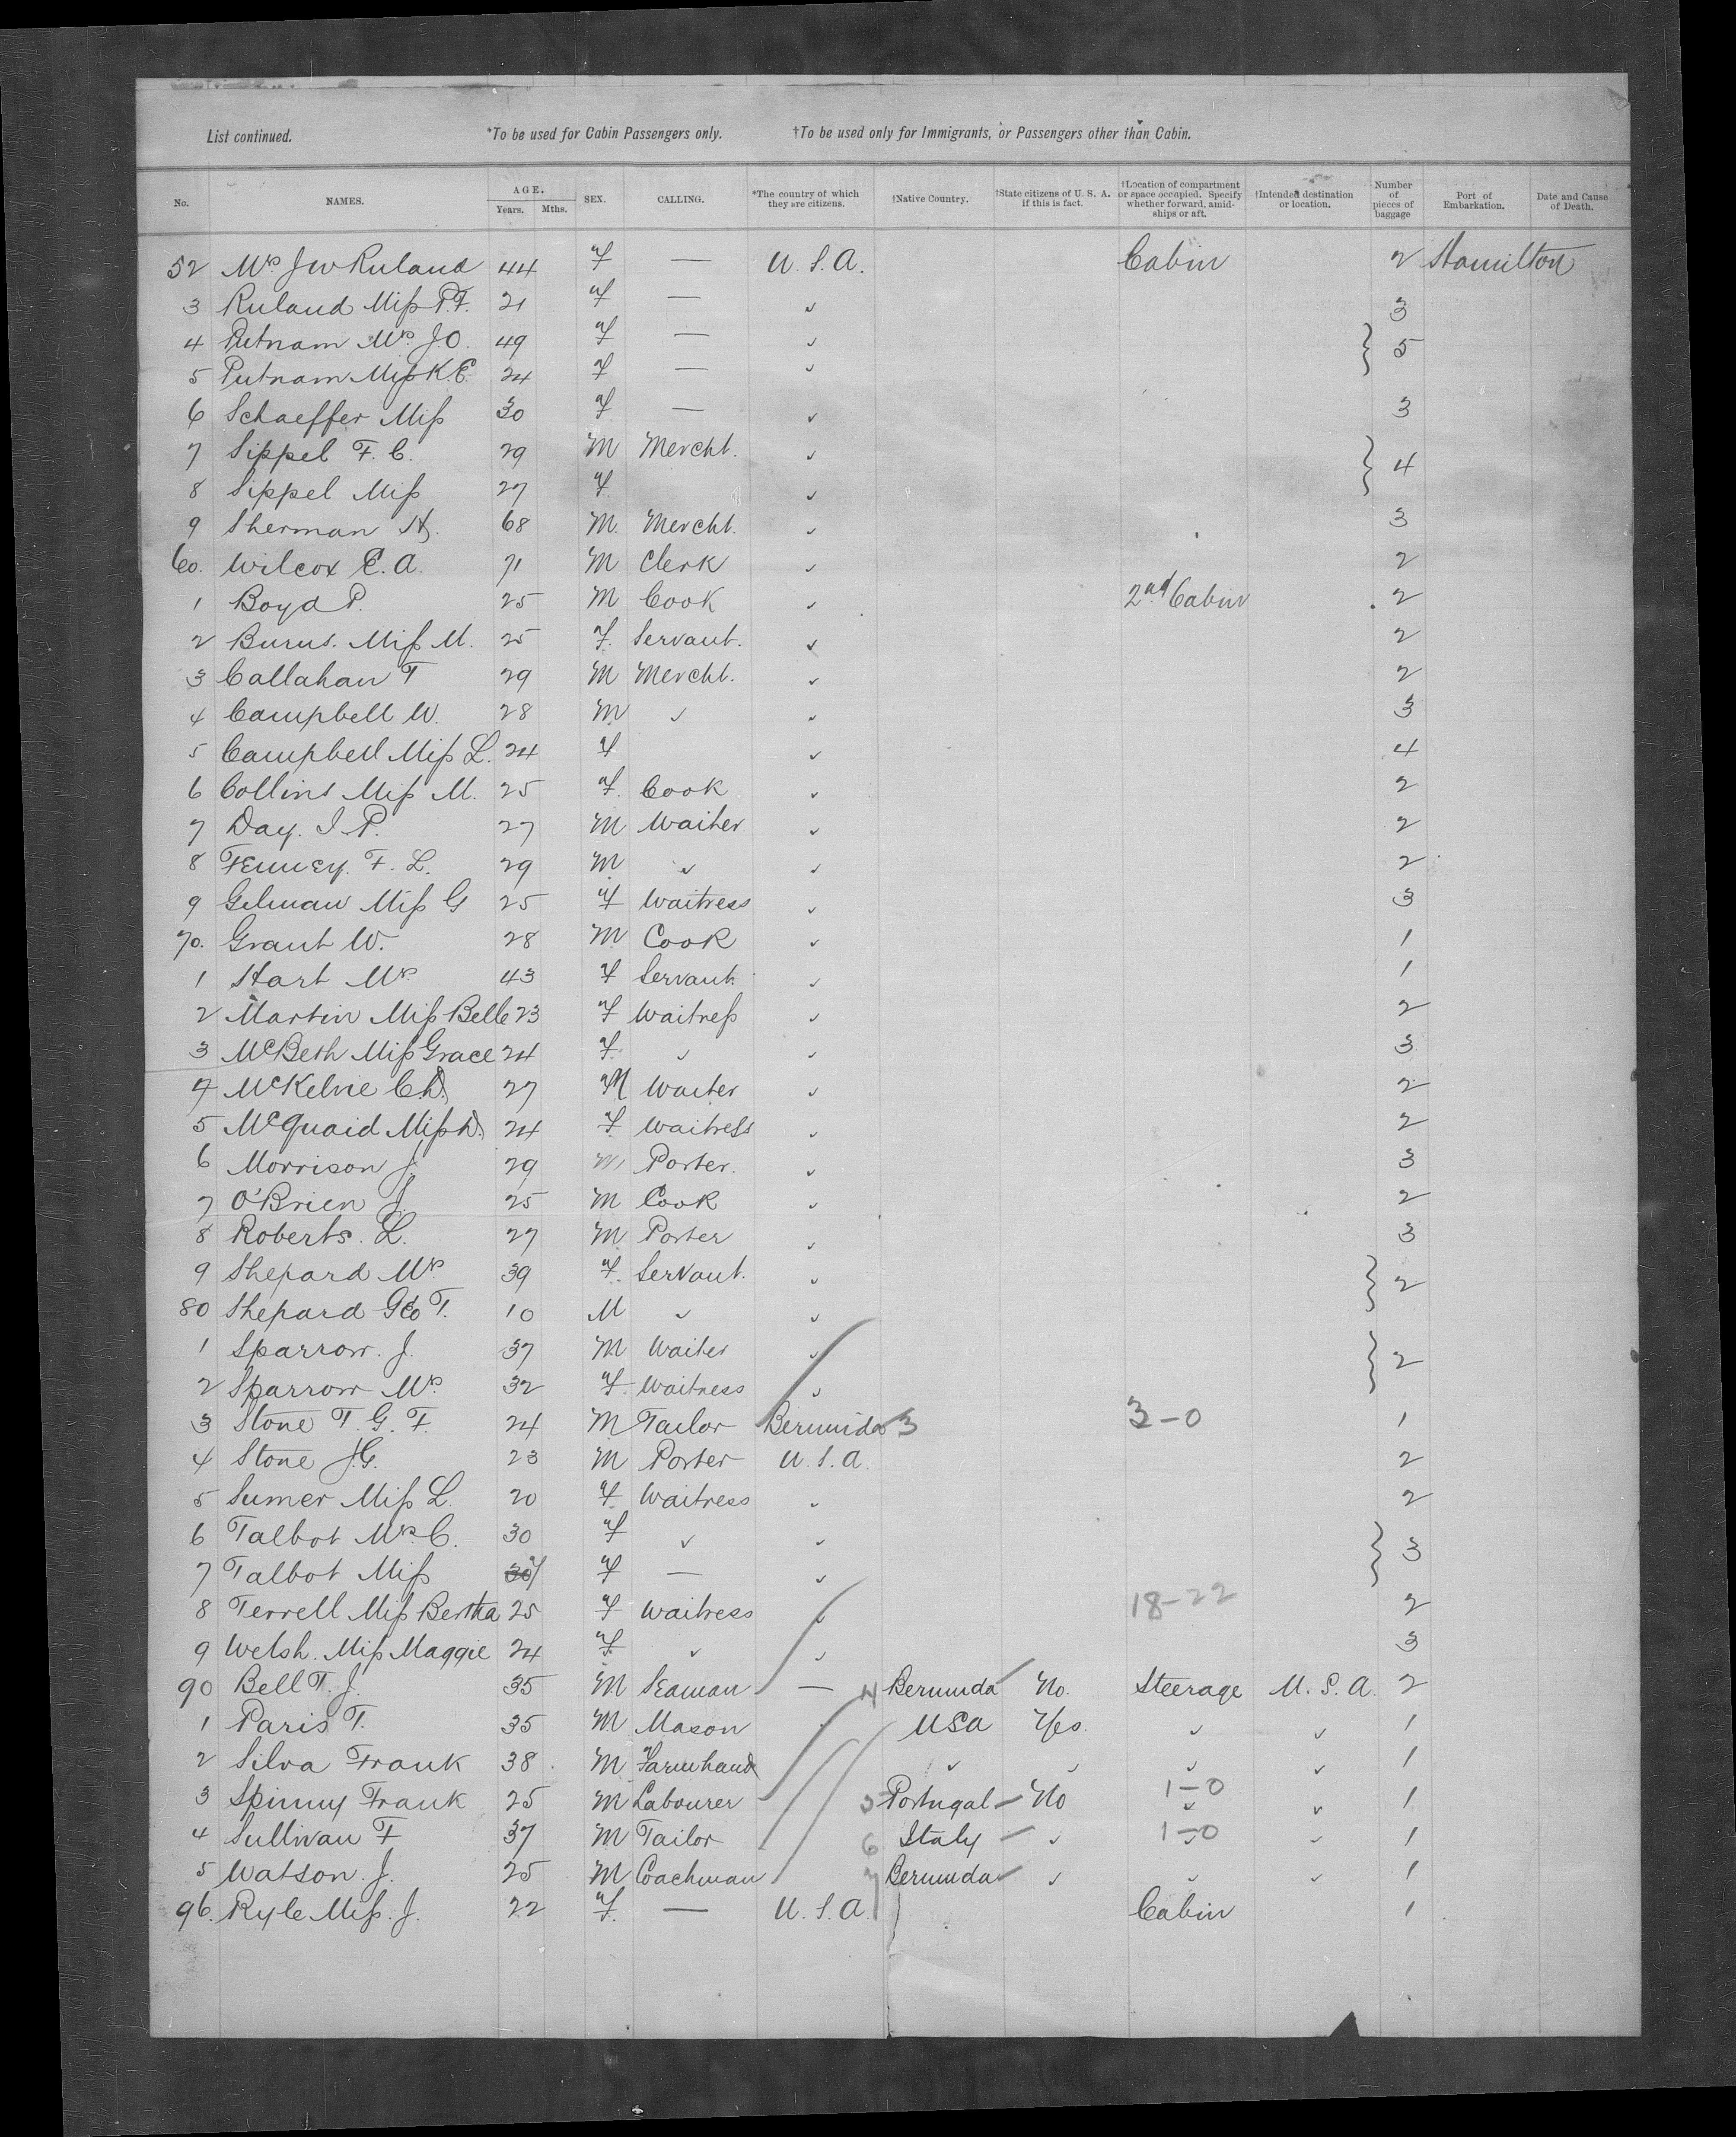 List continued. *To be used for Cabin Passengers only. †To be used only for Immigrants, or Passengers other than Cabin.
No. NAMES. AGE. Years. Mths. SEX. CALLING. *The country of which they are citizens. †Native Country. †State citizens of U. S. A. if this is fact. †Location of compartment or space occupied. Specify whether forward, amidships or aft. †Intended destination or location. Number of pieces of baggage Port of Embarkation. Date and Cause of Death.
52 Mrs J W Ruland 44 F — U.S.A. Cabin 2 Hamilton
3 Ruland Miss P.F. 21 F — ✓ 3
4 Putnam Mrs J O. 49 F — ✓ } 5
5 Putnam Miss K.E. 24 F — ✓
6 Schaeffer Miss 30 F — ✓ 3
7 Sippel F. C. 29 M Mercht. ✓ } 4
8 Sippel Miss 27 F ✓
9 Sherman H. 68 M. Mercht. ✓ 3
60. Wilcox E. A. 71 M Clerk ✓ 2
1 Boyd P. 25 M Cook ✓ 2nd Cabin 2
2 Burns. Miss M. 25 F. Servant. ✓ 2
3 Callahan T 29 M Mercht. ✓ 2
4 Campbell W. 28 M ✓ ✓ 3
5 Campbell Miss L. 24 F ✓ 4
6 Collins Miss M. 25 F. Cook ✓ 2
7 Day. I. P. 27 M Waiter ✓ 2
8 Fenney. F. L. 29 M ✓ ✓ 2
9 Gilman Miss G 25 F Waitress ✓ 3
70. Grant W. 28 M Cook ✓ 1
1 Hart Mrs 43 F Servant ✓ 1
2 Martin Miss Belle 23 F Waitress ✓ 2
3 McBeth Miss Grace 24 F. ✓ ✓ 3
4 McKelvie C.D. 27 M Waiter ✓ 2
5 McQuaid Miss D. 24 F Waitress ✓ 2
6 Morrison J. 29 M Porter. ✓ 3
7 O'Brien J. 25 M Cook ✓ 2
8 Roberts. L. 27 M Porter ✓ 3
9 Shepard Mrs 39 F. Servant. ✓ } 2
80 Shepard Geo T. 10 M ✓ ✓
1 Sparrow. J. 37 M Waiter ✓ } 2
2 Sparrow Mrs. 32 F. Waitress ✓
3 Stone T. G. F. 24 M Tailor Bermuda 3 3-0 1
4 Stone J.G. 23 M Porter U.S.A. 2
5 Sumer Miss L. 20 F Waitress ✓ 2
6 Talbot Mrs C. 30 F ✓ ✓ } 3
7 Talbot Miss F — ✓
8 Terrell Miss Bertha 25 F Waitress ✓ 18-22 2
9 Welsh. Miss Maggie 24 F. ✓ ✓ 3
90 Bell T. J. 35 M Seaman — 4 Bermuda No. Steerage U.S.A. 2
1 Paris T. 35 M Mason USA Yes. ✓ ✓ 1
2 Silva Frank 38. M Farmhand ✓ ✓ ✓ ✓ 1
3 Spinny Frank 25 M Labourer Portugal No 1-0 ✓ ✓ 1
4 Sullivan F 37 M Tailor 6 Italy ✓ 1-0 ✓ ✓ 1
5 Watson. J. 25 M Coachman 7 Bermuda ✓ ✓ ✓ 1
96. Ryle Miss. J. 22 F. — U.S.A. Cabin 1